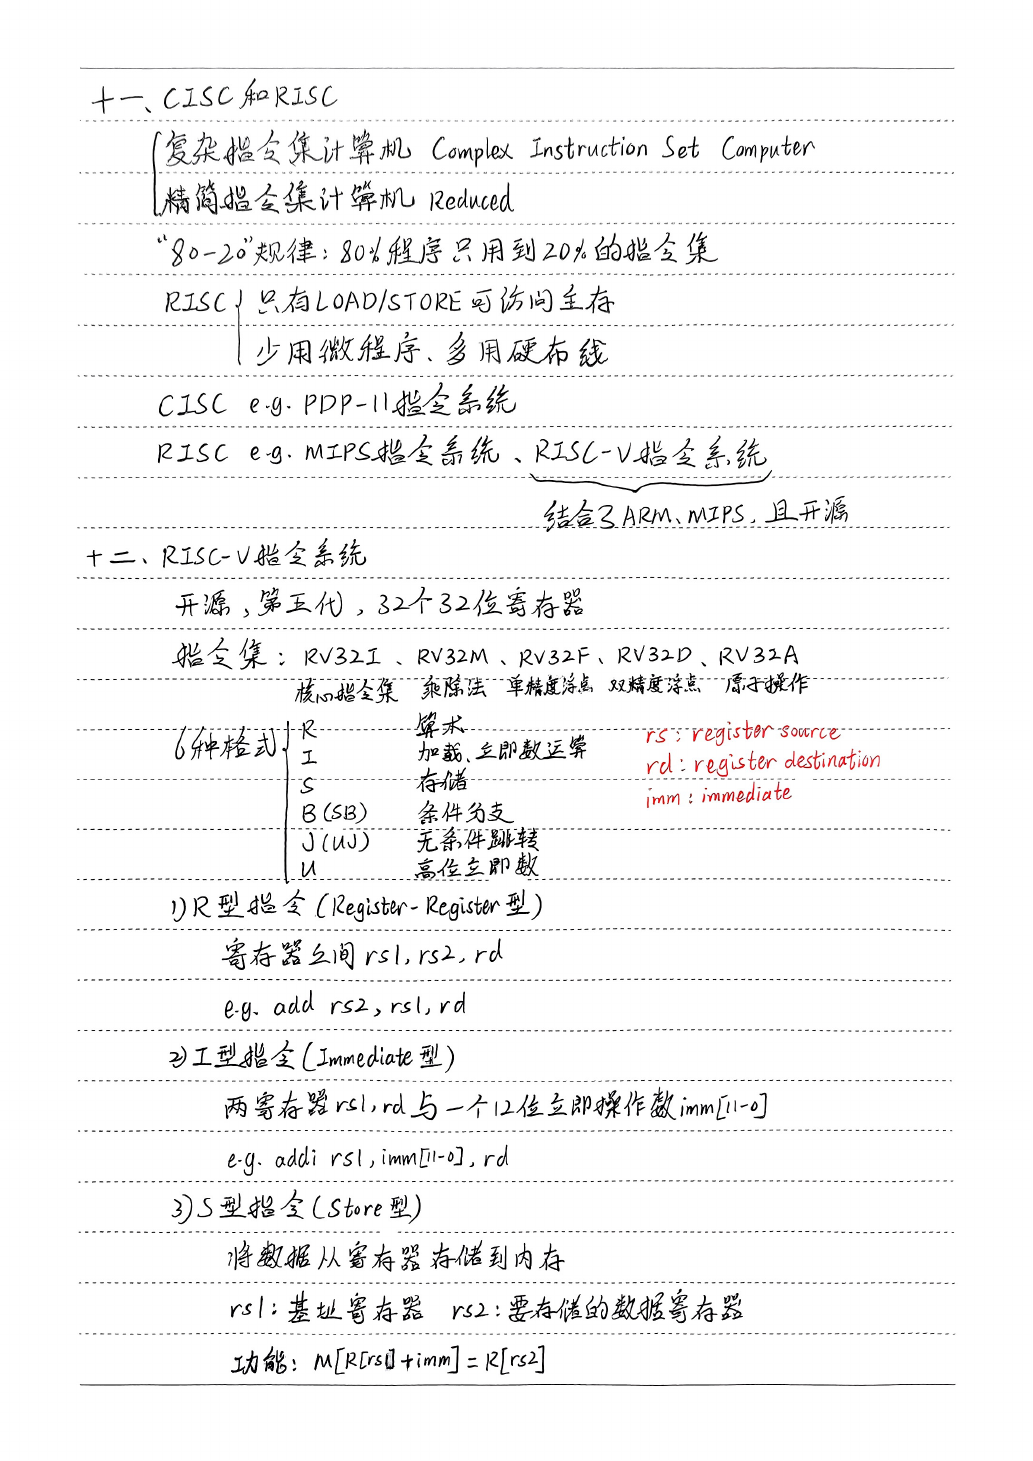 十一、CISC和RISC
复杂指令集计算机 Complex Instruction Set Computer
精简指令集计算机 Reduced
“80-20”规律：80%程序只用到20%的指令集
RISC 只有LOAD/STORE可访问主存
少用微程序、多用硬布线
CISC e.g. PDP-11指令系统
RISC e.g. MIPS指令系统、RISC-V指令系统
结合了ARM、MIPS，且开源
十二、RISC-V指令系统
开源，第五代，32个32位寄存器
指令集：RV32I、RV32M、RV32F、RV32D、RV32A
核心指令集 乘除法 单精度浮点 双精度浮点 原子操作
6种格式
R 算术
I 加载、立即数运算
S 存储
B(SB) 条件分支
J(UJ) 无条件跳转
U 高位立即数
rs：register source
rd：register destination
imm：immediate
1)R型指令(Register-Register型)
寄存器之间rs1,rs2,rd
e.g. add rs2,rs1,rd
2)I型指令(Immediate型)
两寄存器rs1,rd与一个12位立即操作数imm[11-0]
e.g. addi rs1,imm[11-0],rd
3)S型指令(Store型)
将数据从寄存器存储到内存
rs1：基址寄存器 rs2：要存储的数据寄存器
功能：M[R[rs1]+imm]=R[rs2]